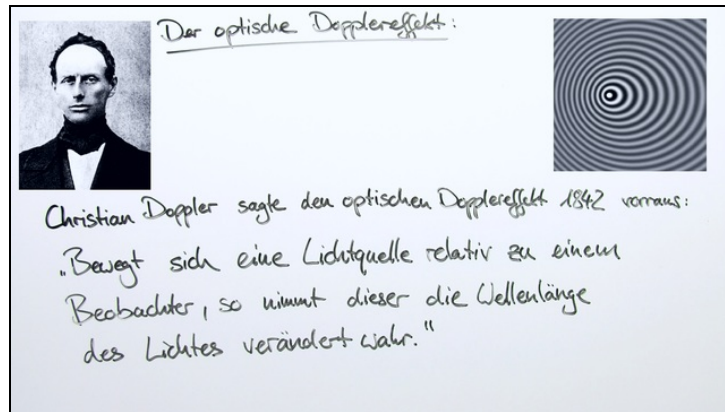 Der optische Dopplereffekt:
Christian Doppler sagte den optischen Dopplereffekt 1842 vorraus:
„Bewegt sich eine Lichtquelle relativ zu einem
Beobachter, so nimmt dieser die Wellenlänge
des Lichtes verändert wahr."